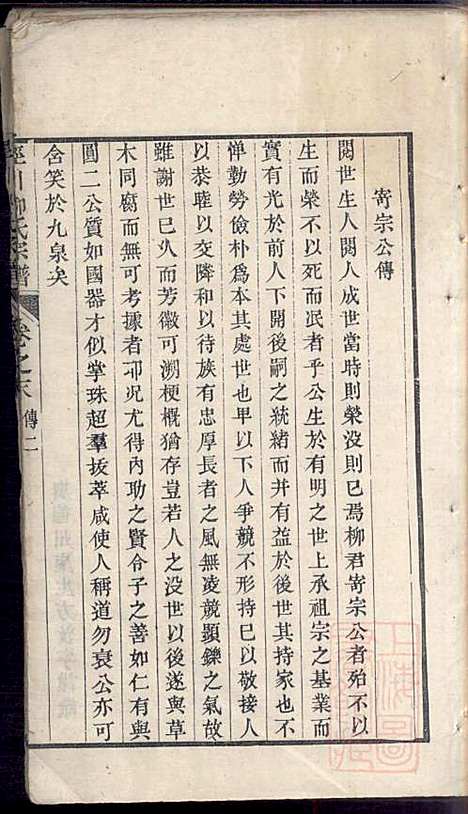 寄宗公傳
閱世生人閱人成世當時則榮沒則已焉柳君寄宗公者殆不以
生而榮不以死而泯者乎公生於有明之世上承祖宗之基業而
實有光於前人下開後嗣之統緒而并有益於後世其持家也不
憚勤勞儉朴爲本其處世也卑以下人爭競不形持已以敬接人
以恭睦以交隣和以待族有忠厚長者之風無凌競顯鑠之氣故
雖謝世已久而芳徽可溯梗概猶存豈若人之沒世以後遂與草
木同腐而無可考據者耶况尤得內助之賢令子之善如仁有與
圓二公質如國器才似掌珠超羣拔萃咸使人稱道勿衰公亦可
含笑於九泉矣
涇川柳氏宗譜 卷之末 傳 二
上海圖